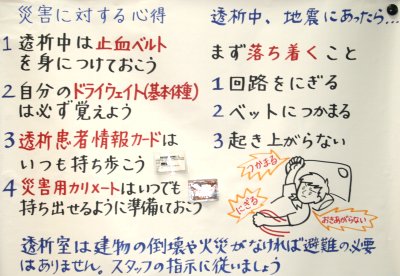 災害に対する心得
1 透析中は止血ベルト
を身につけておこう
2 自分のドライウェイト(基本体重)
は必ず覚えよう
3 透析患者情報カードは
いつも持ち歩こう
4 災害用カリメートはいつでも
持ち出せるように準備しておこう
透析中、地震にあったら…
まず落ち着くこと
1 回路をにぎる
2 ベットにつかまる
3 起き上がらない
つかまる
にぎる
おきあがらない
透析室は建物の倒壊や火災がなければ避難の必要
はありません。スタッフの指示に従いましょう